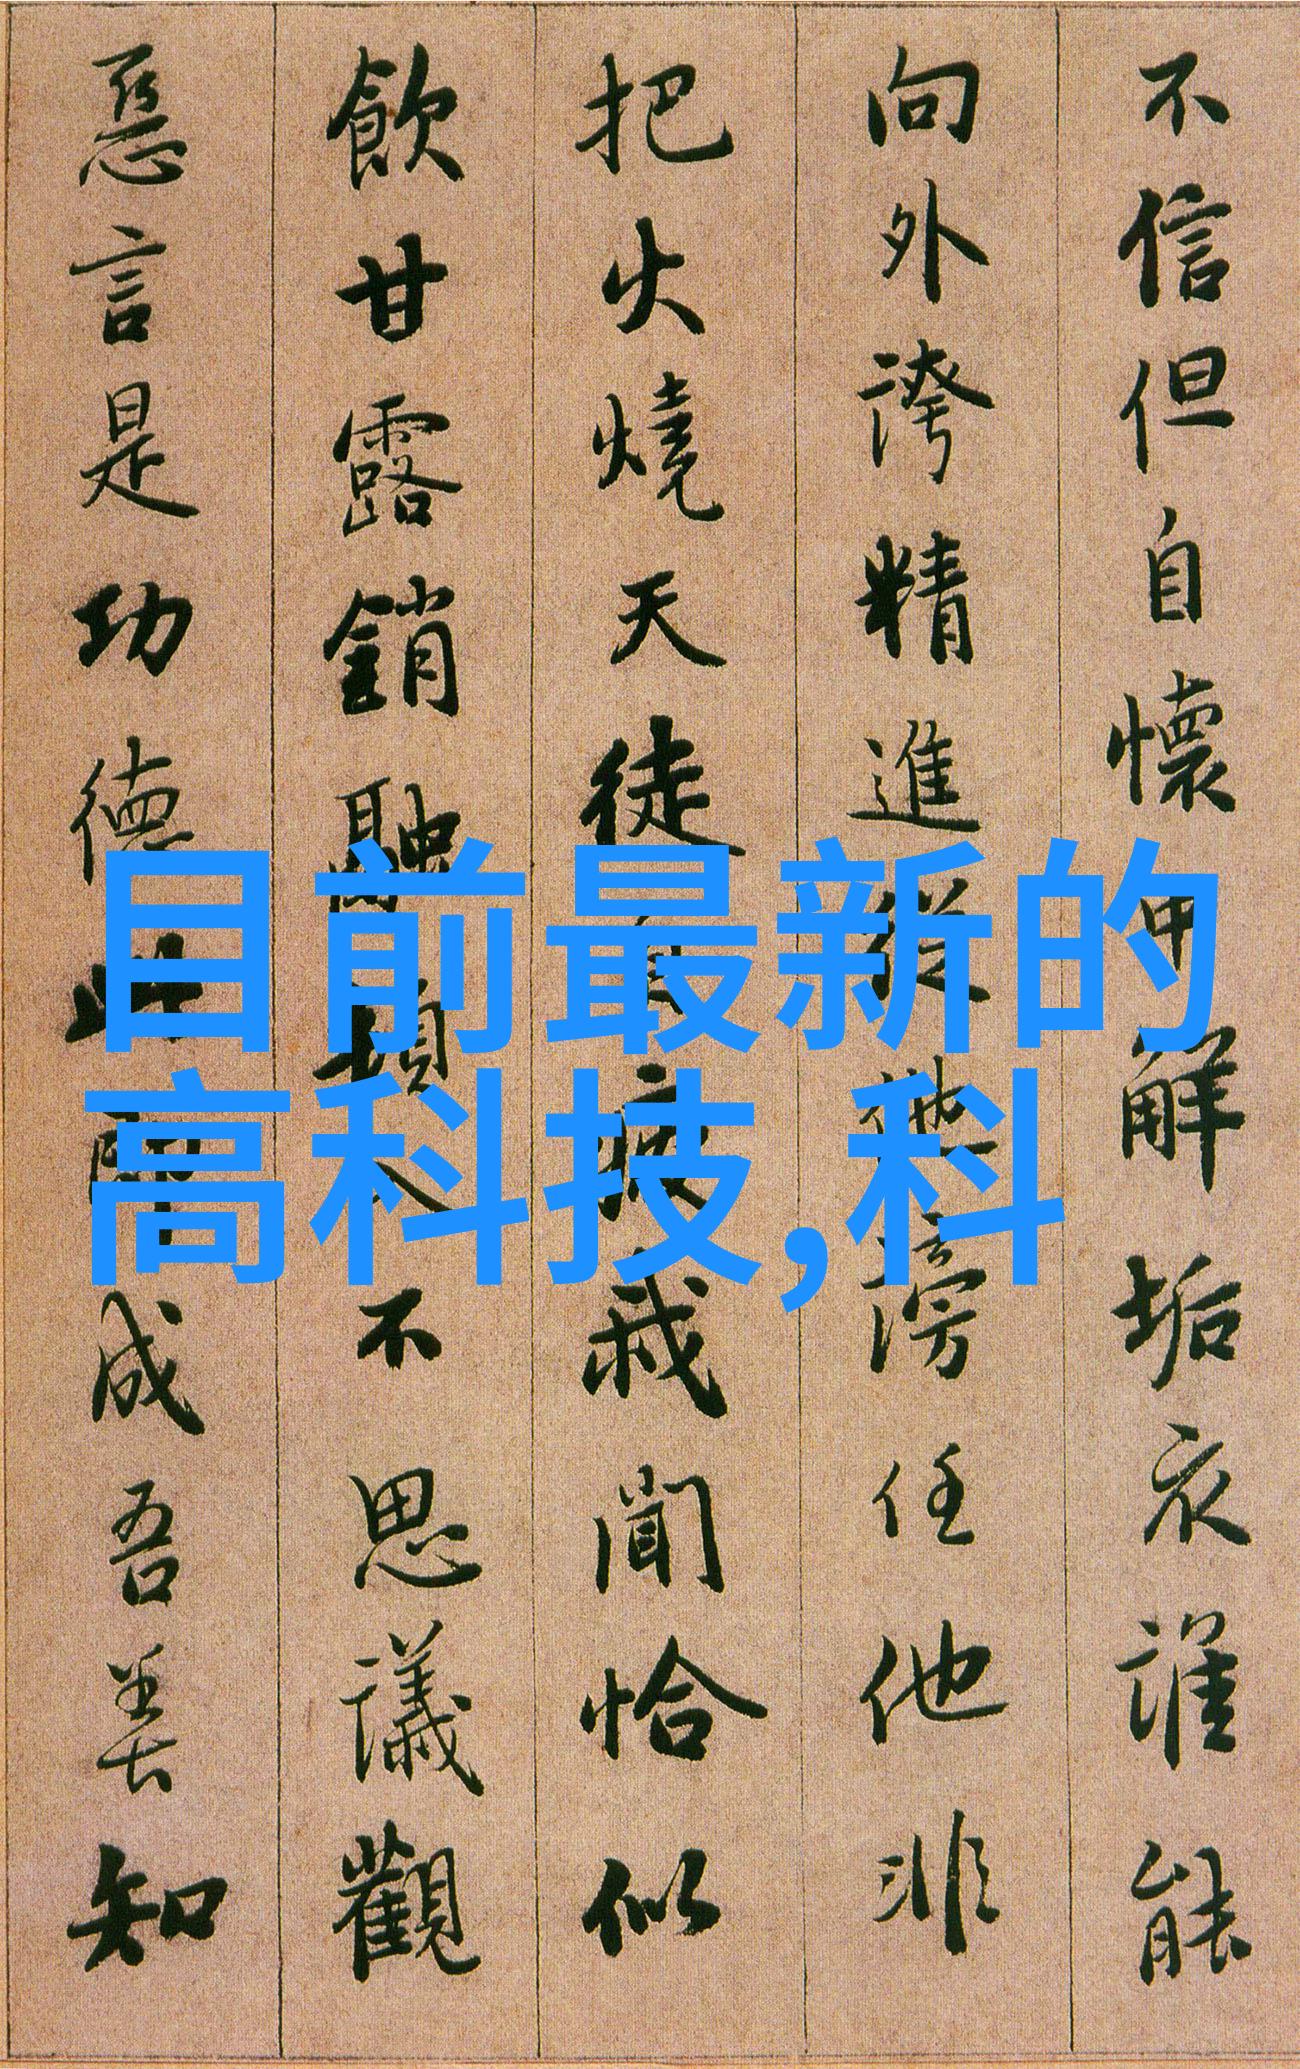 不信但自懷中解垢衣誰能
向外誇精進從他謗任他非
把火燒天徒自疲我聞恰似
飲甘露銷融頓入不思議觀
惡言是功德此即成吾善知
目前最新的
高科技,科